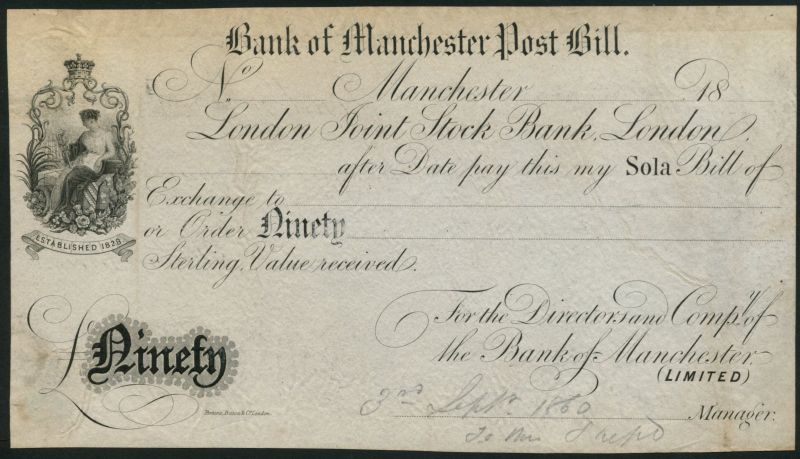 Bank of Manchester Post Bill.
No Manchester 18
London Joint Stock Bank, London,
after Date pay this my Sola Bill of
Exchange to
or Order Ninety
Sterling, Value received.
ESTABLISHED 1828
For the Directors and Compy. of
the Bank of Manchester
(LIMITED)
£Ninety
3rd Septr 1860
Manager.
To Mr